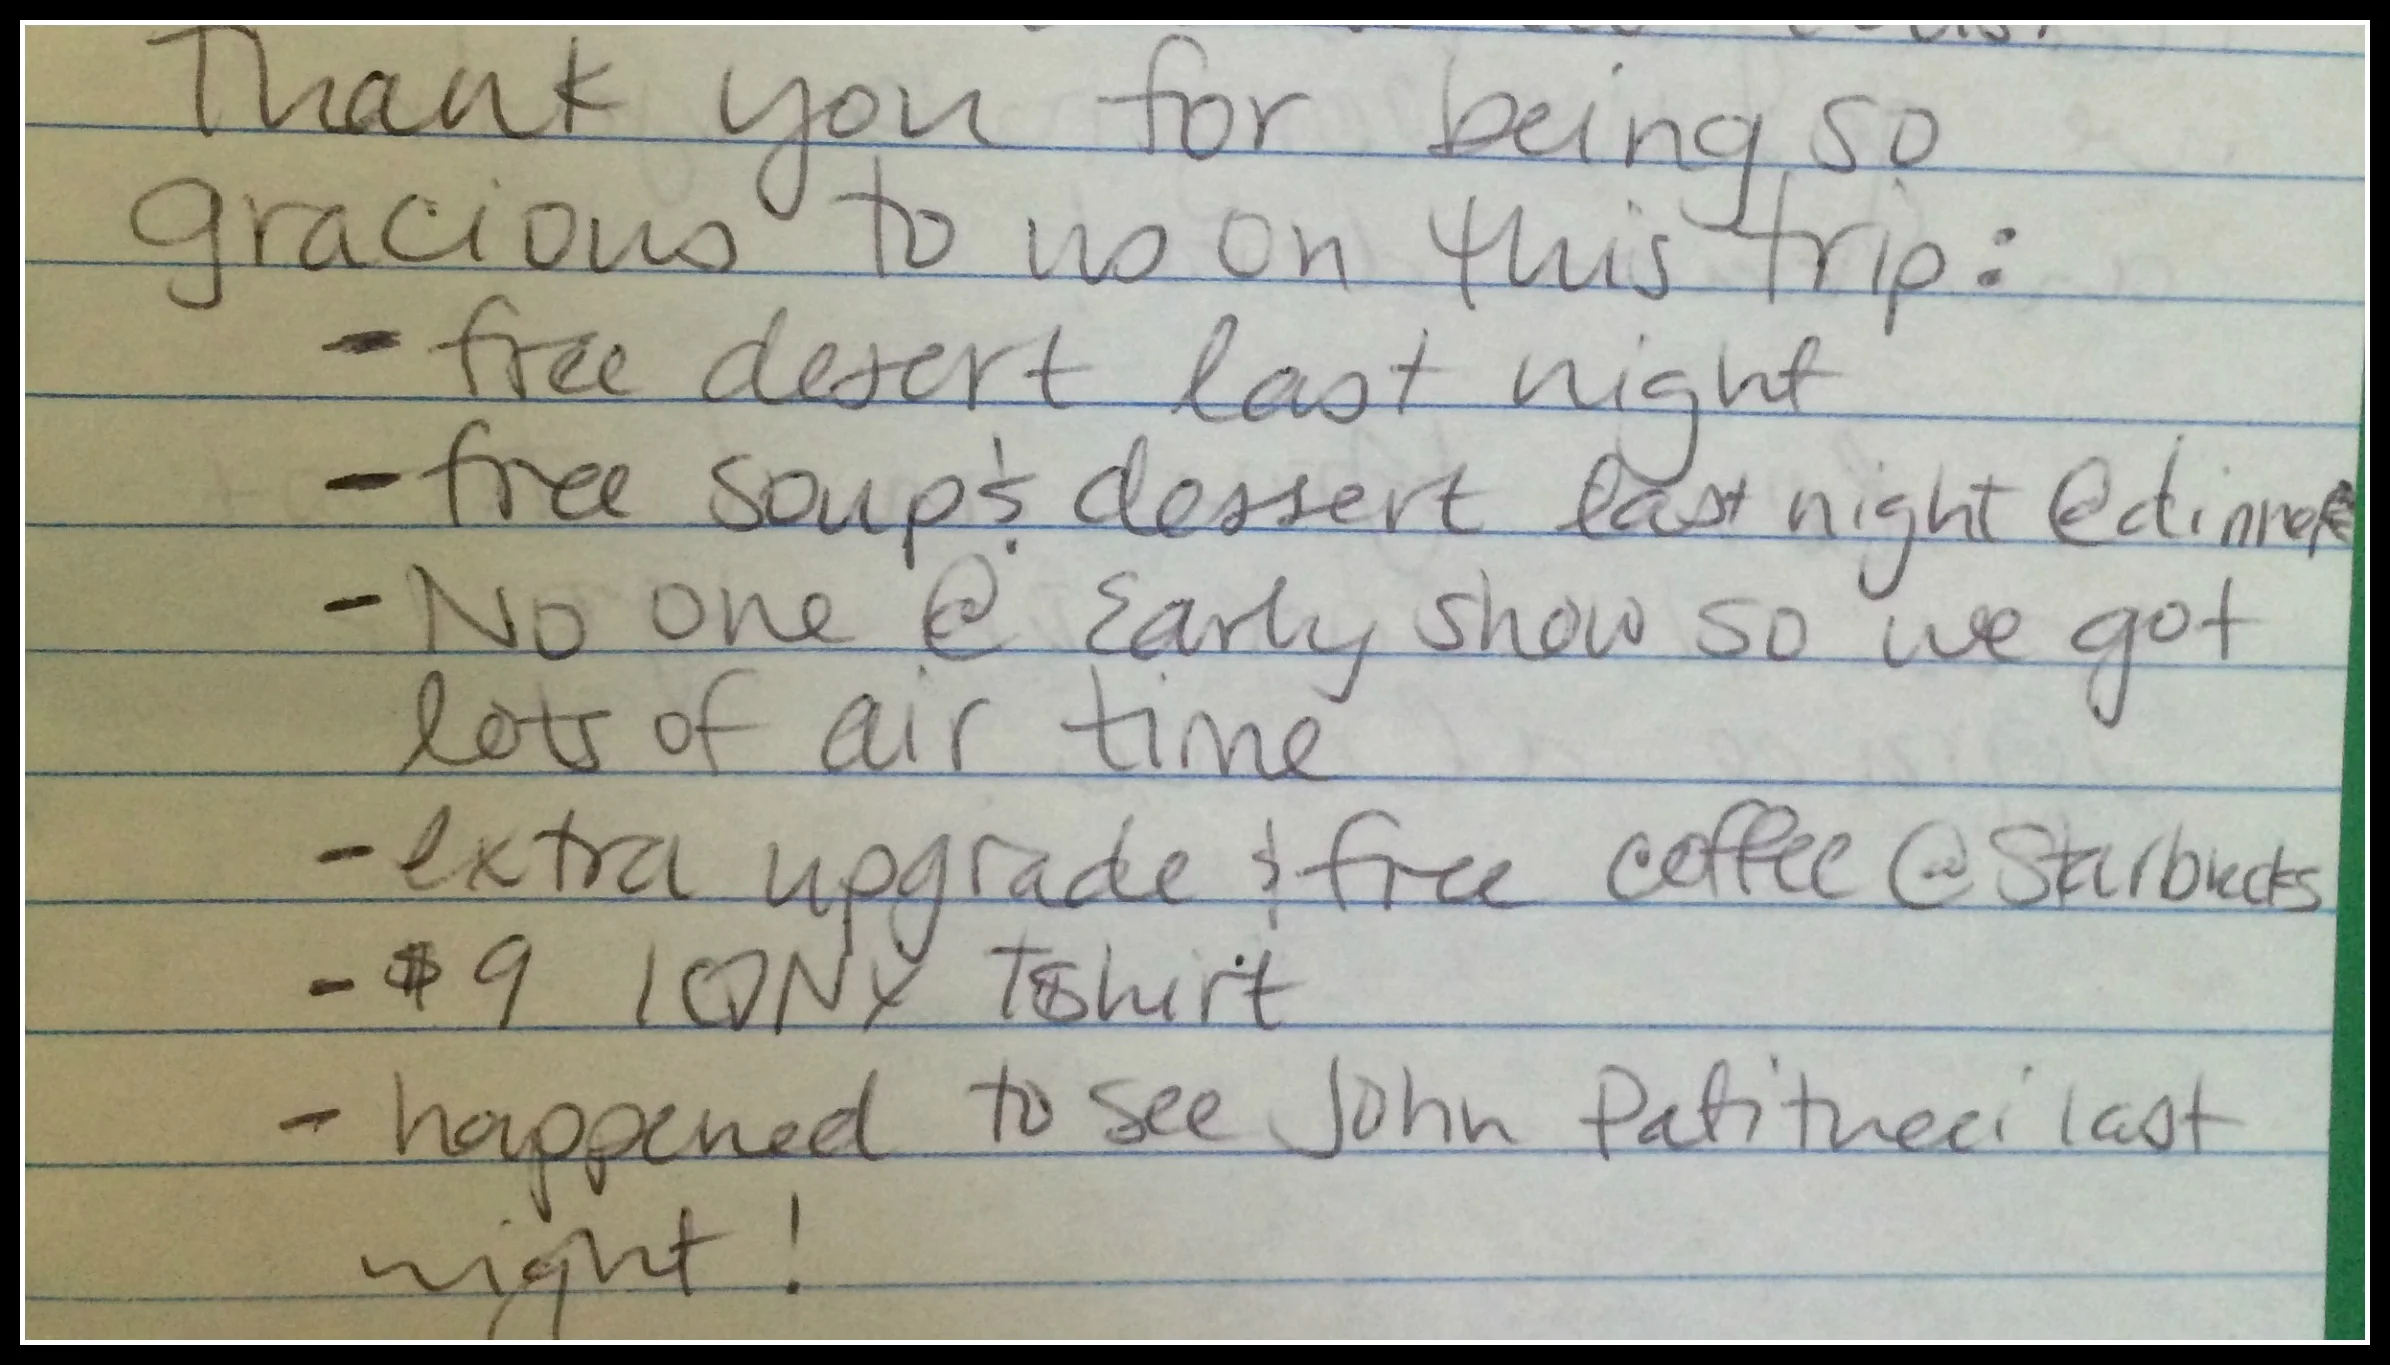 Thank you for being so
gracious to us on this trip:
- free desert last night
- free soup & dessert last night @ dinner
- No one @ Early show so we got
lots of air time
- extra upgrade & free coffee @ Starbucks
- $9 I♡NY Tshirt
- happened to see John Patitucci last
night!